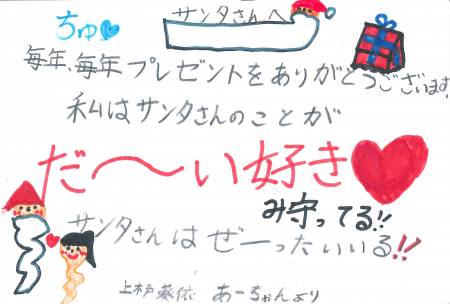 サンタさんへ
ちゅ
毎年、毎年プレゼントをありがとうございます!
私はサンタさんのことが
だ〜い好き
み守ってる!!
サンタさんはぜーったいいる!!
上杉葵依 あーちゃんより